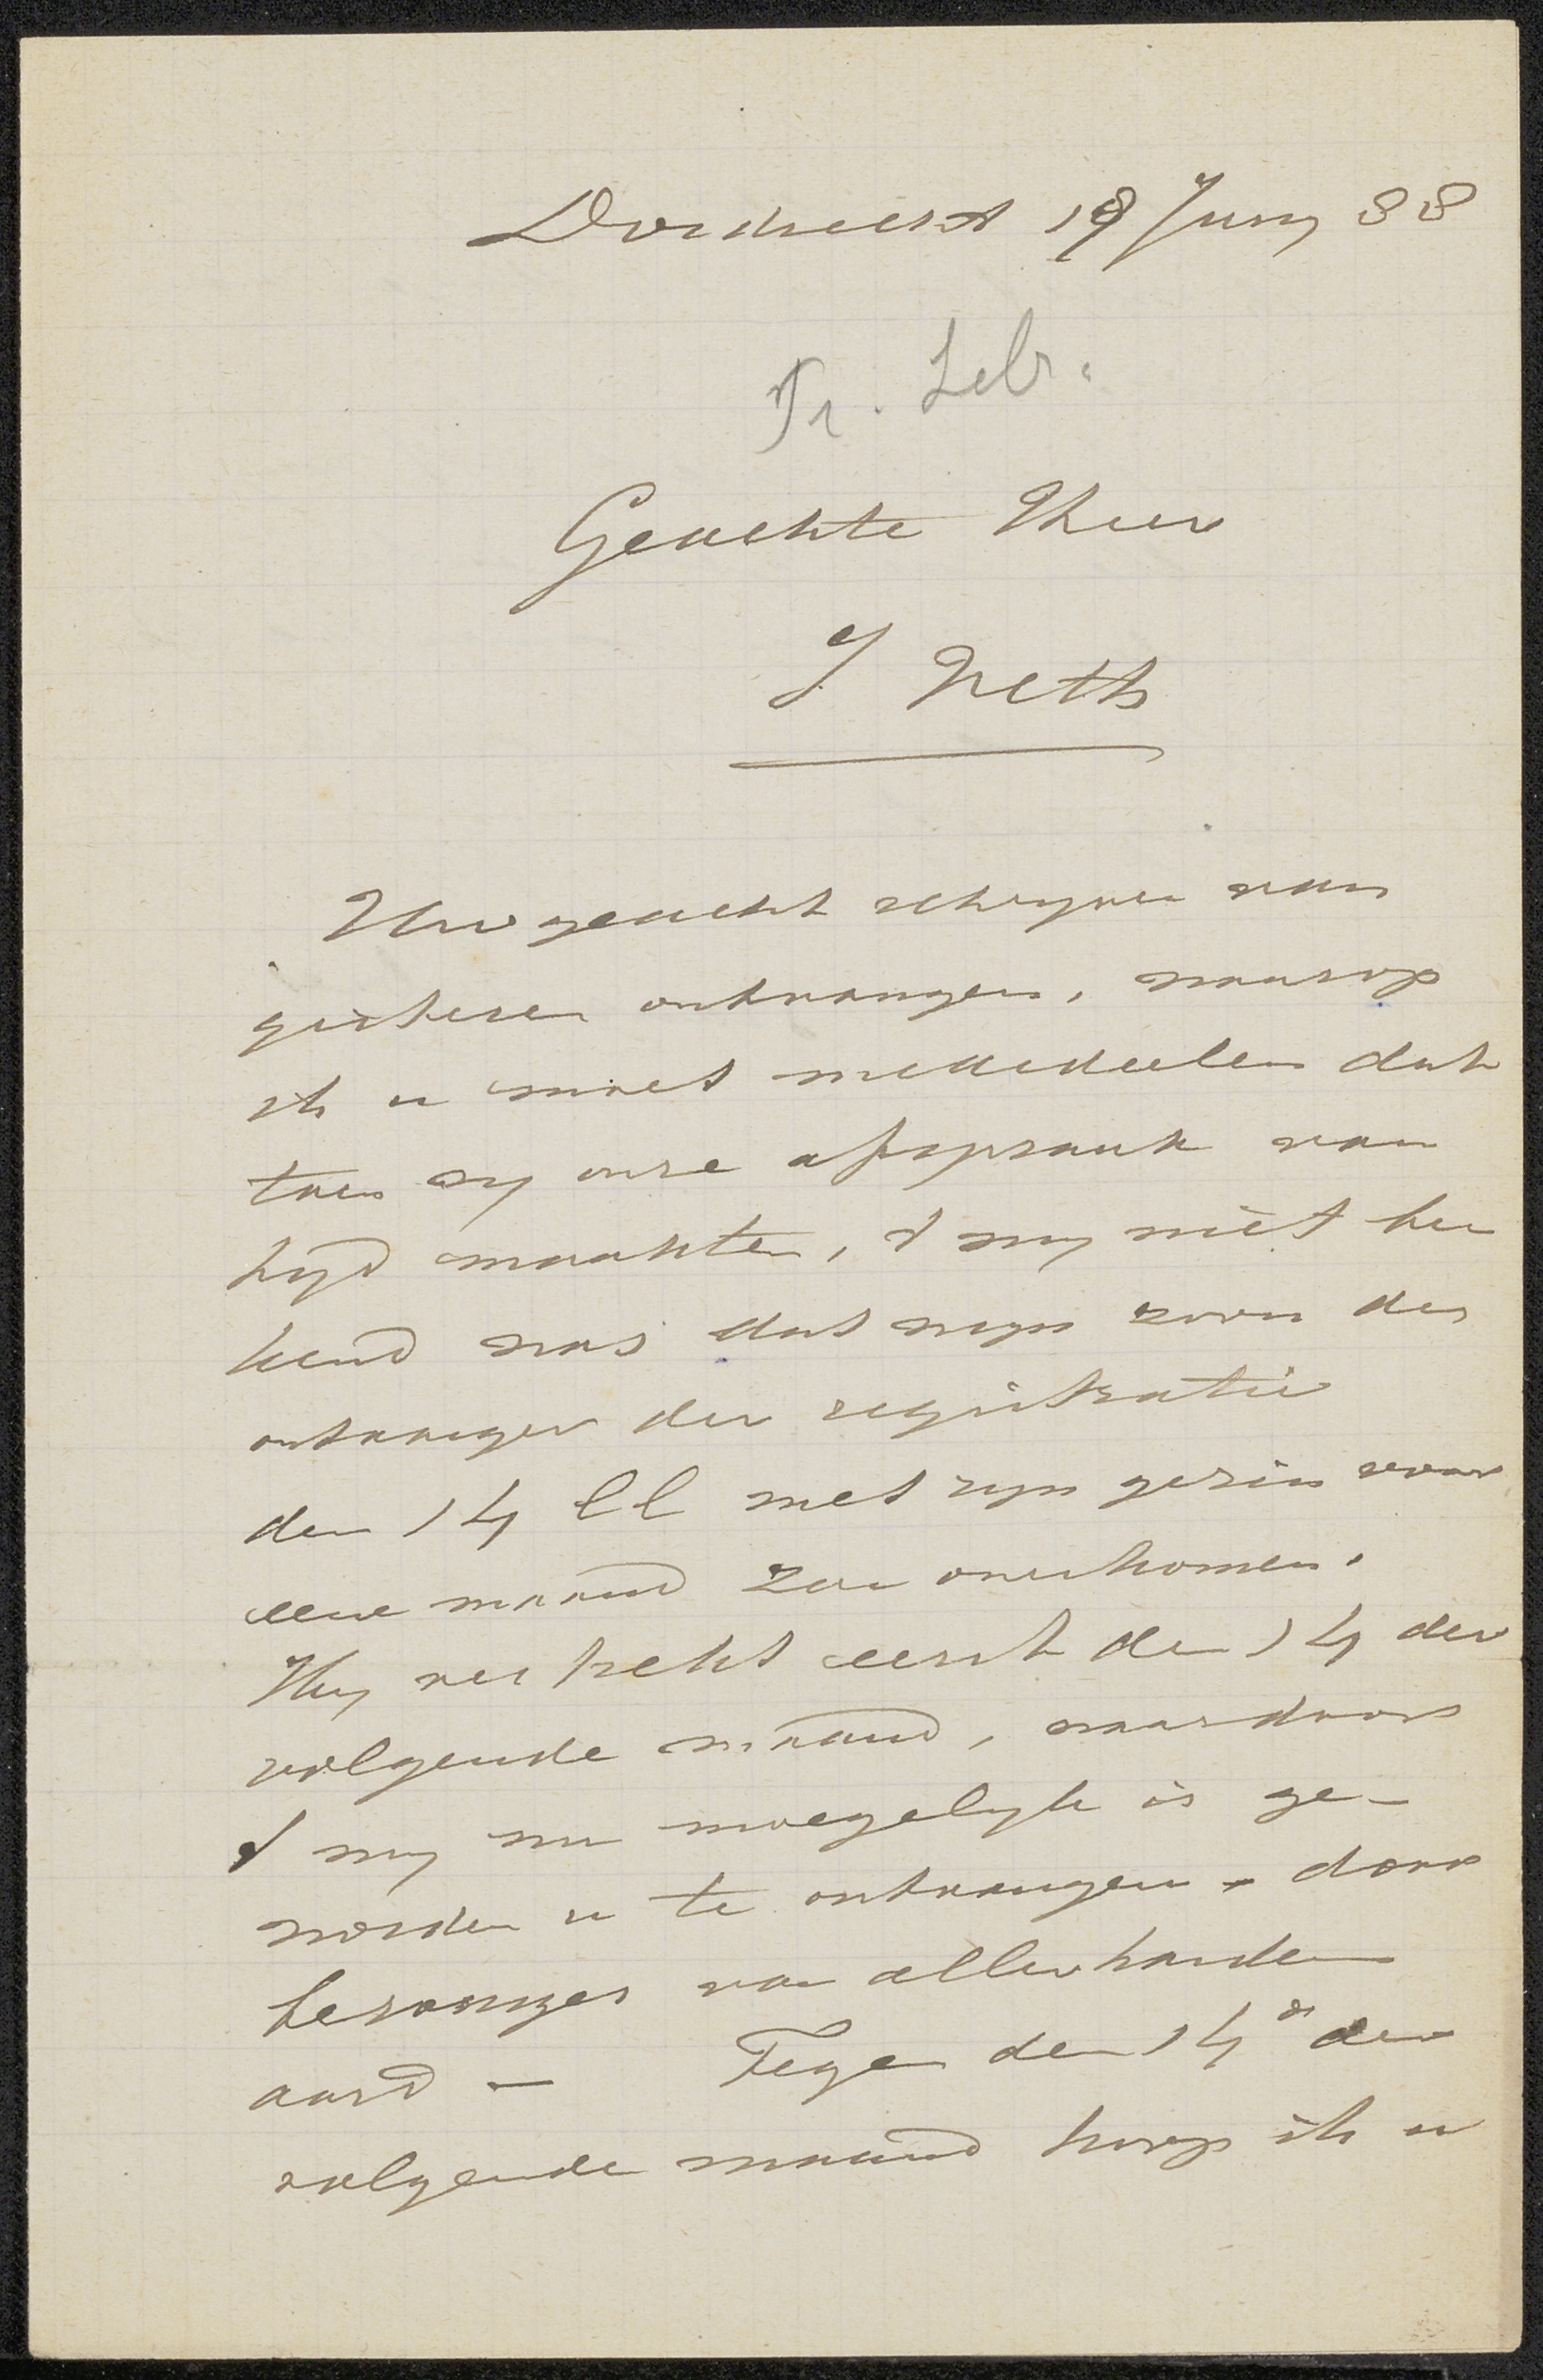 Dordrecht 19 Juny 88
Fr. Lebr.
Geachte Heer
J Veth
Uw geacht schryven van
gisteren ontvangen, waarop
ik u moet mededeelen dat
toen wy onze afspraak van
tyd maakten, 't my niet be
kend was dat myn zoon de
ontvanger der registratie
den 14 ll met zyn gezin voor
eene maand zou overkomen.
Hy vertrekt eerst den 14 der
volgende maand, waardoor
't my nu moegelyk is ge-
worden u te ontvangen - door
van allerhanden
aard - Tegen den 14n der
volgende maand hoop ik u